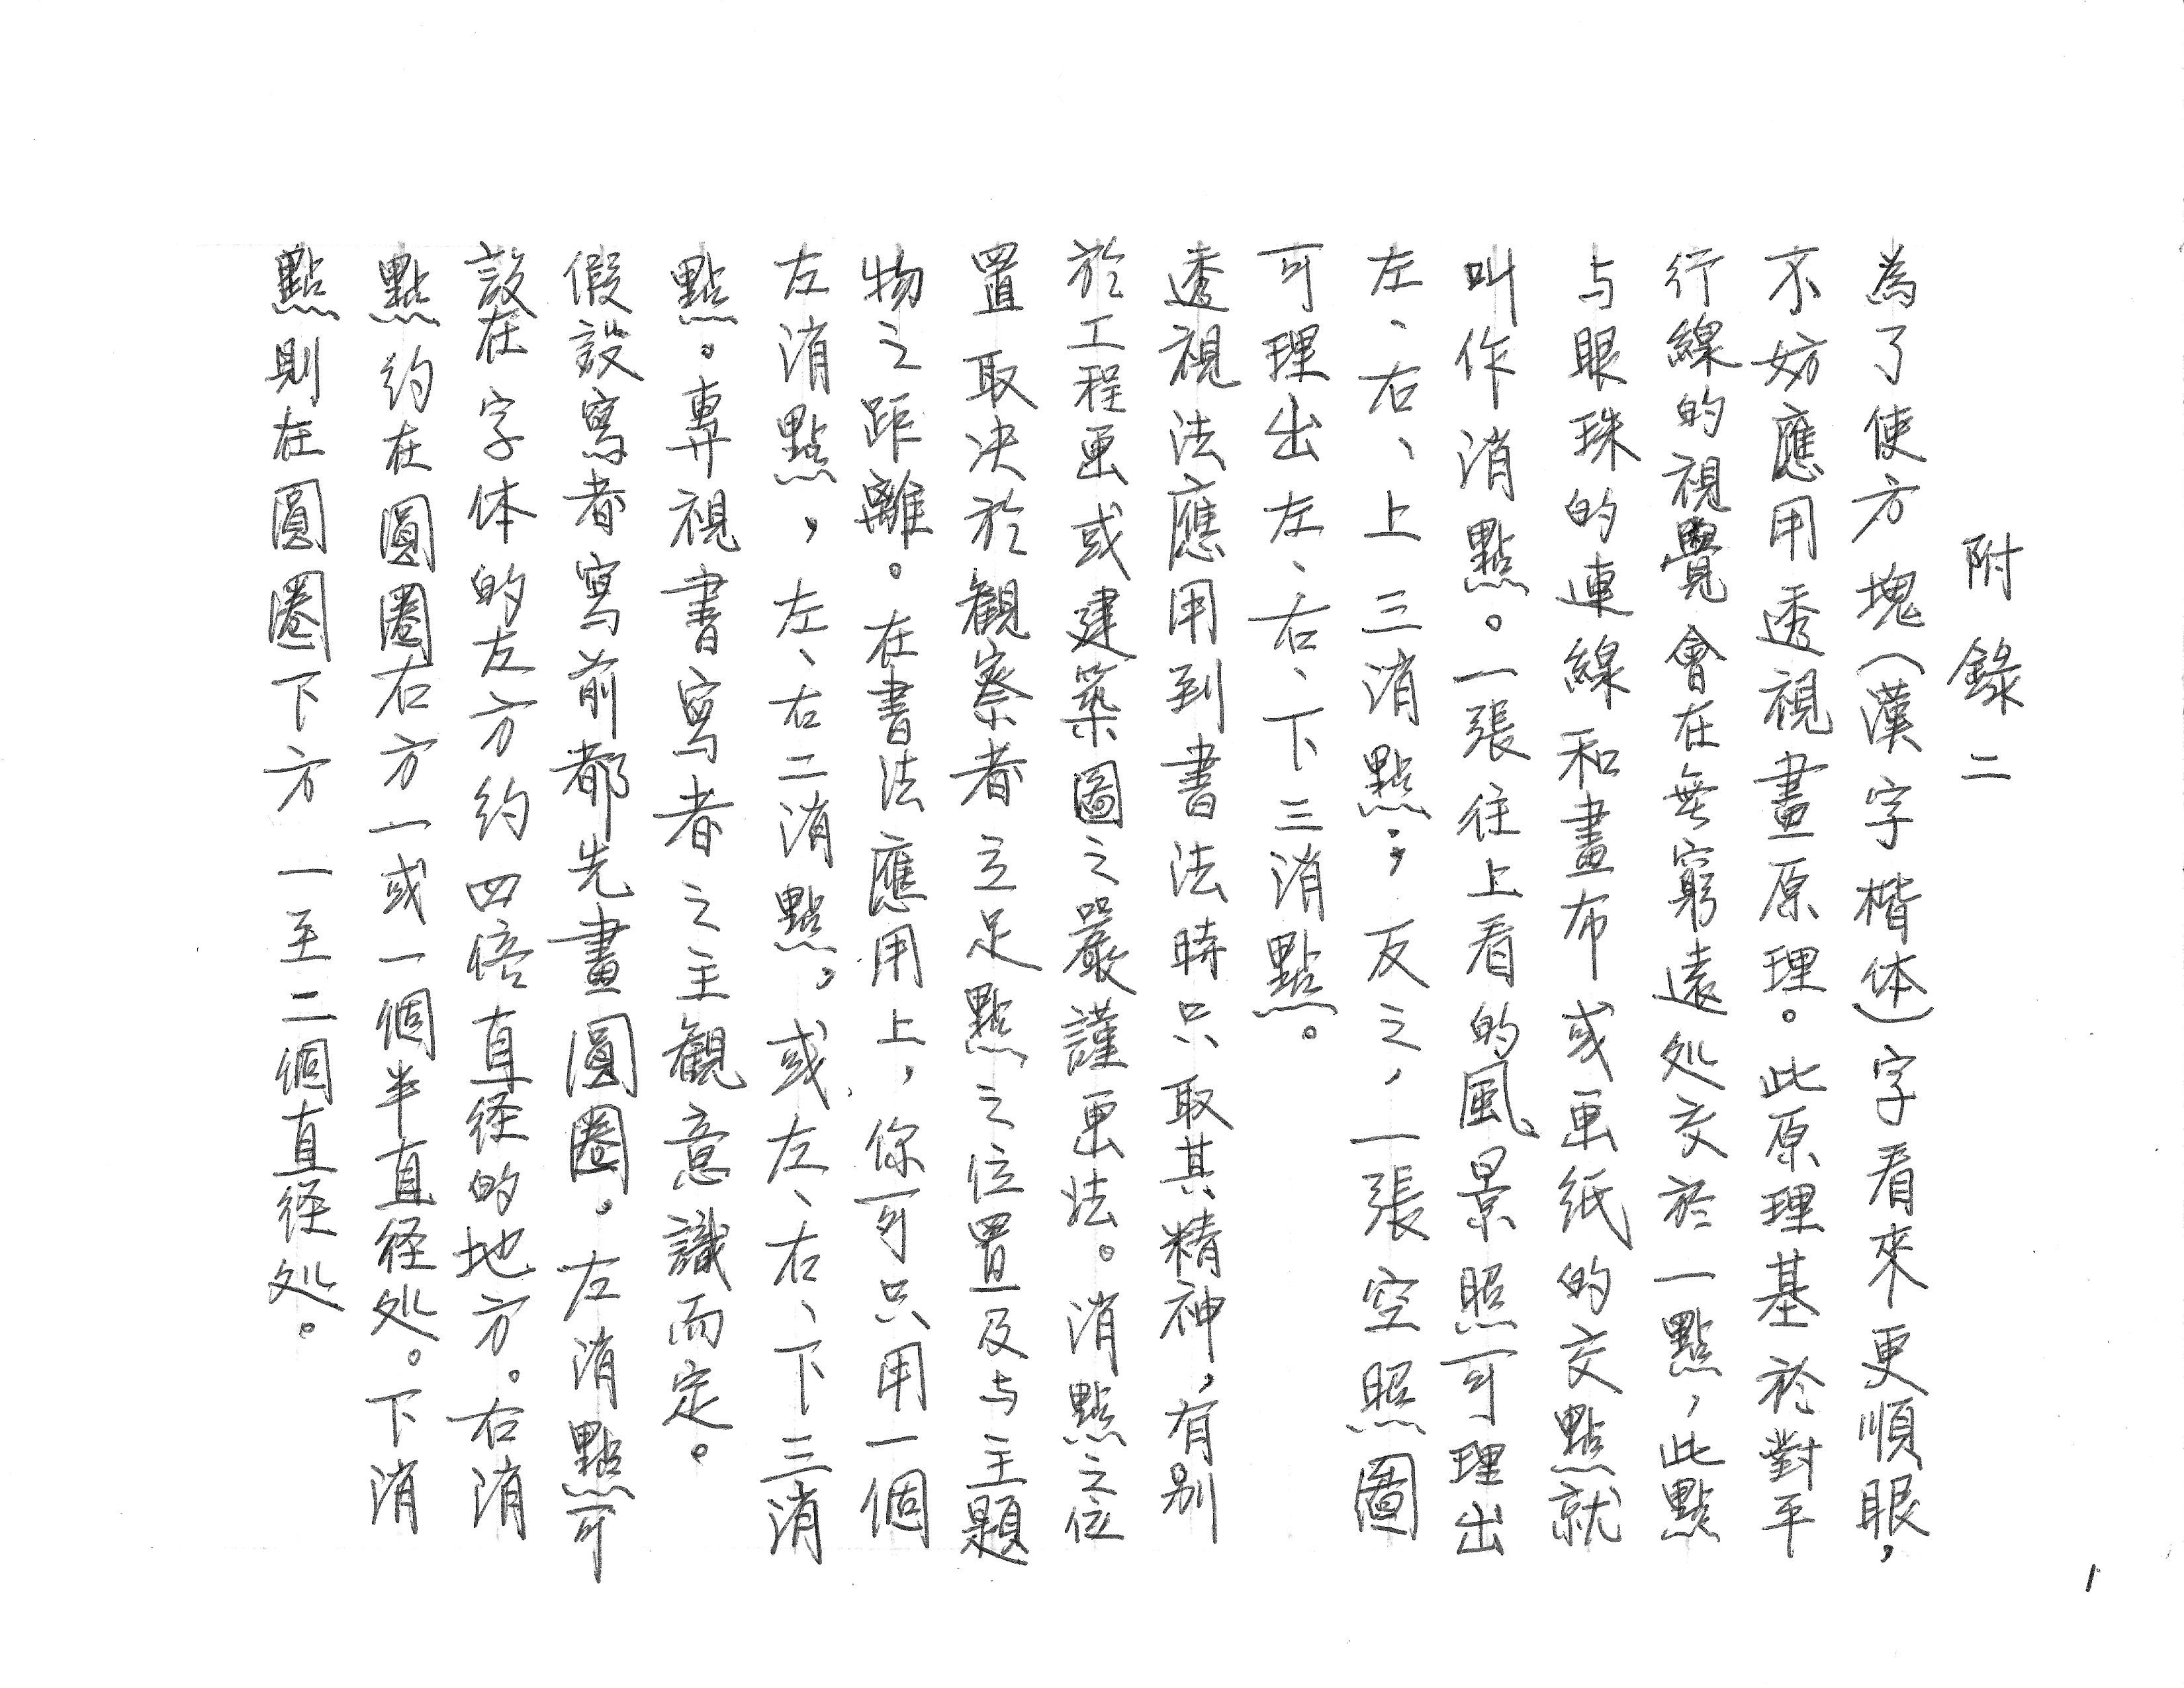 附錄二
為了使方塊(漢字楷体)字看來更順眼,
不妨應用透視畫原理。此原理基於對平
行線的視覺會在無窮遠处交於一點,此點
与眼珠的連線和畫布或画紙的交點就
叫作消點。一張往上看的風景照可理出
左、右、上三消點;反之,一張空照圖
可理出左、右、下三消點。
透視法應用到書法時只取其精神,有別
於工程画或建築圖之嚴謹画法。消點之位
置取決於観察者立足點之位置及与主題
物之距離。在書法應用上,你可只用一個
左消點,左、右二消點,或左、右、下三消
點。專視書寫者之主観意識而定。
假設寫者寫前都先畫圓圈,左消點可
設在字体的左方約四倍直径的地方。右消
點約在圓圈右方一或一個半直径处。下消
點則在圓圈下方一至二個直径处。
1